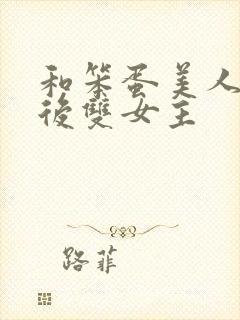 和笨蛋美人
後雙女主
路菲